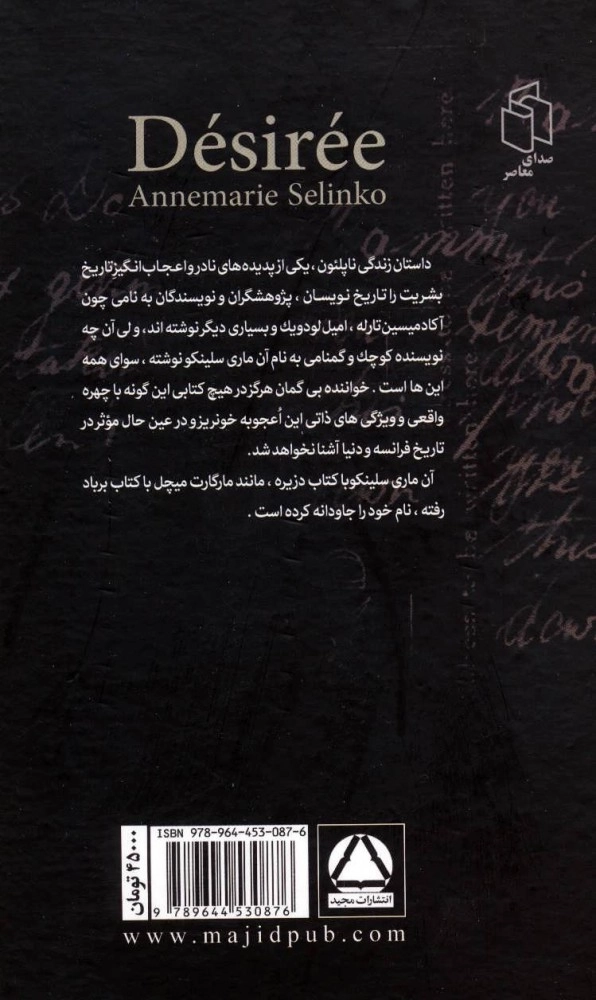 Désirée
Annemarie Selinko
صدای
معاصر
داستان زندگی ناپلئون ، یکی از پدیده‌های نادر و اعجاب انگیز تاریخ
بشریت را تاریخ نویسان ، پژوهشگران و نویسندگان به نامی چون
آکادمیسین تارله ، امیل لودویك و بسیاری دیگر نوشته اند، و لی آن چه
نویسنده کوچك و گمنامی به نام آن ماری سلینکو نوشته ، سوای همه
این ها است . خواننده بی گمان هرگز در هیچ کتابی این گونه با چهره
واقعی و ویژگی های ذاتی این اُعجوبه خونریز و در عین حال مؤثر در
تاریخ فرانسه و دنیا آشنا نخواهد شد.
آن ماری سلینکو با کتاب دزیره ، مانند مارگارت میچل با کتاب برباد
رفته ، نام خود را جاودانه کرده است .
you
a mmy
this
down
written here
ISBN 978-964-453-087-6
9 789644 530876
۴۵۰۰۰ تومان
انتشارات مجید
www.majidpub.com